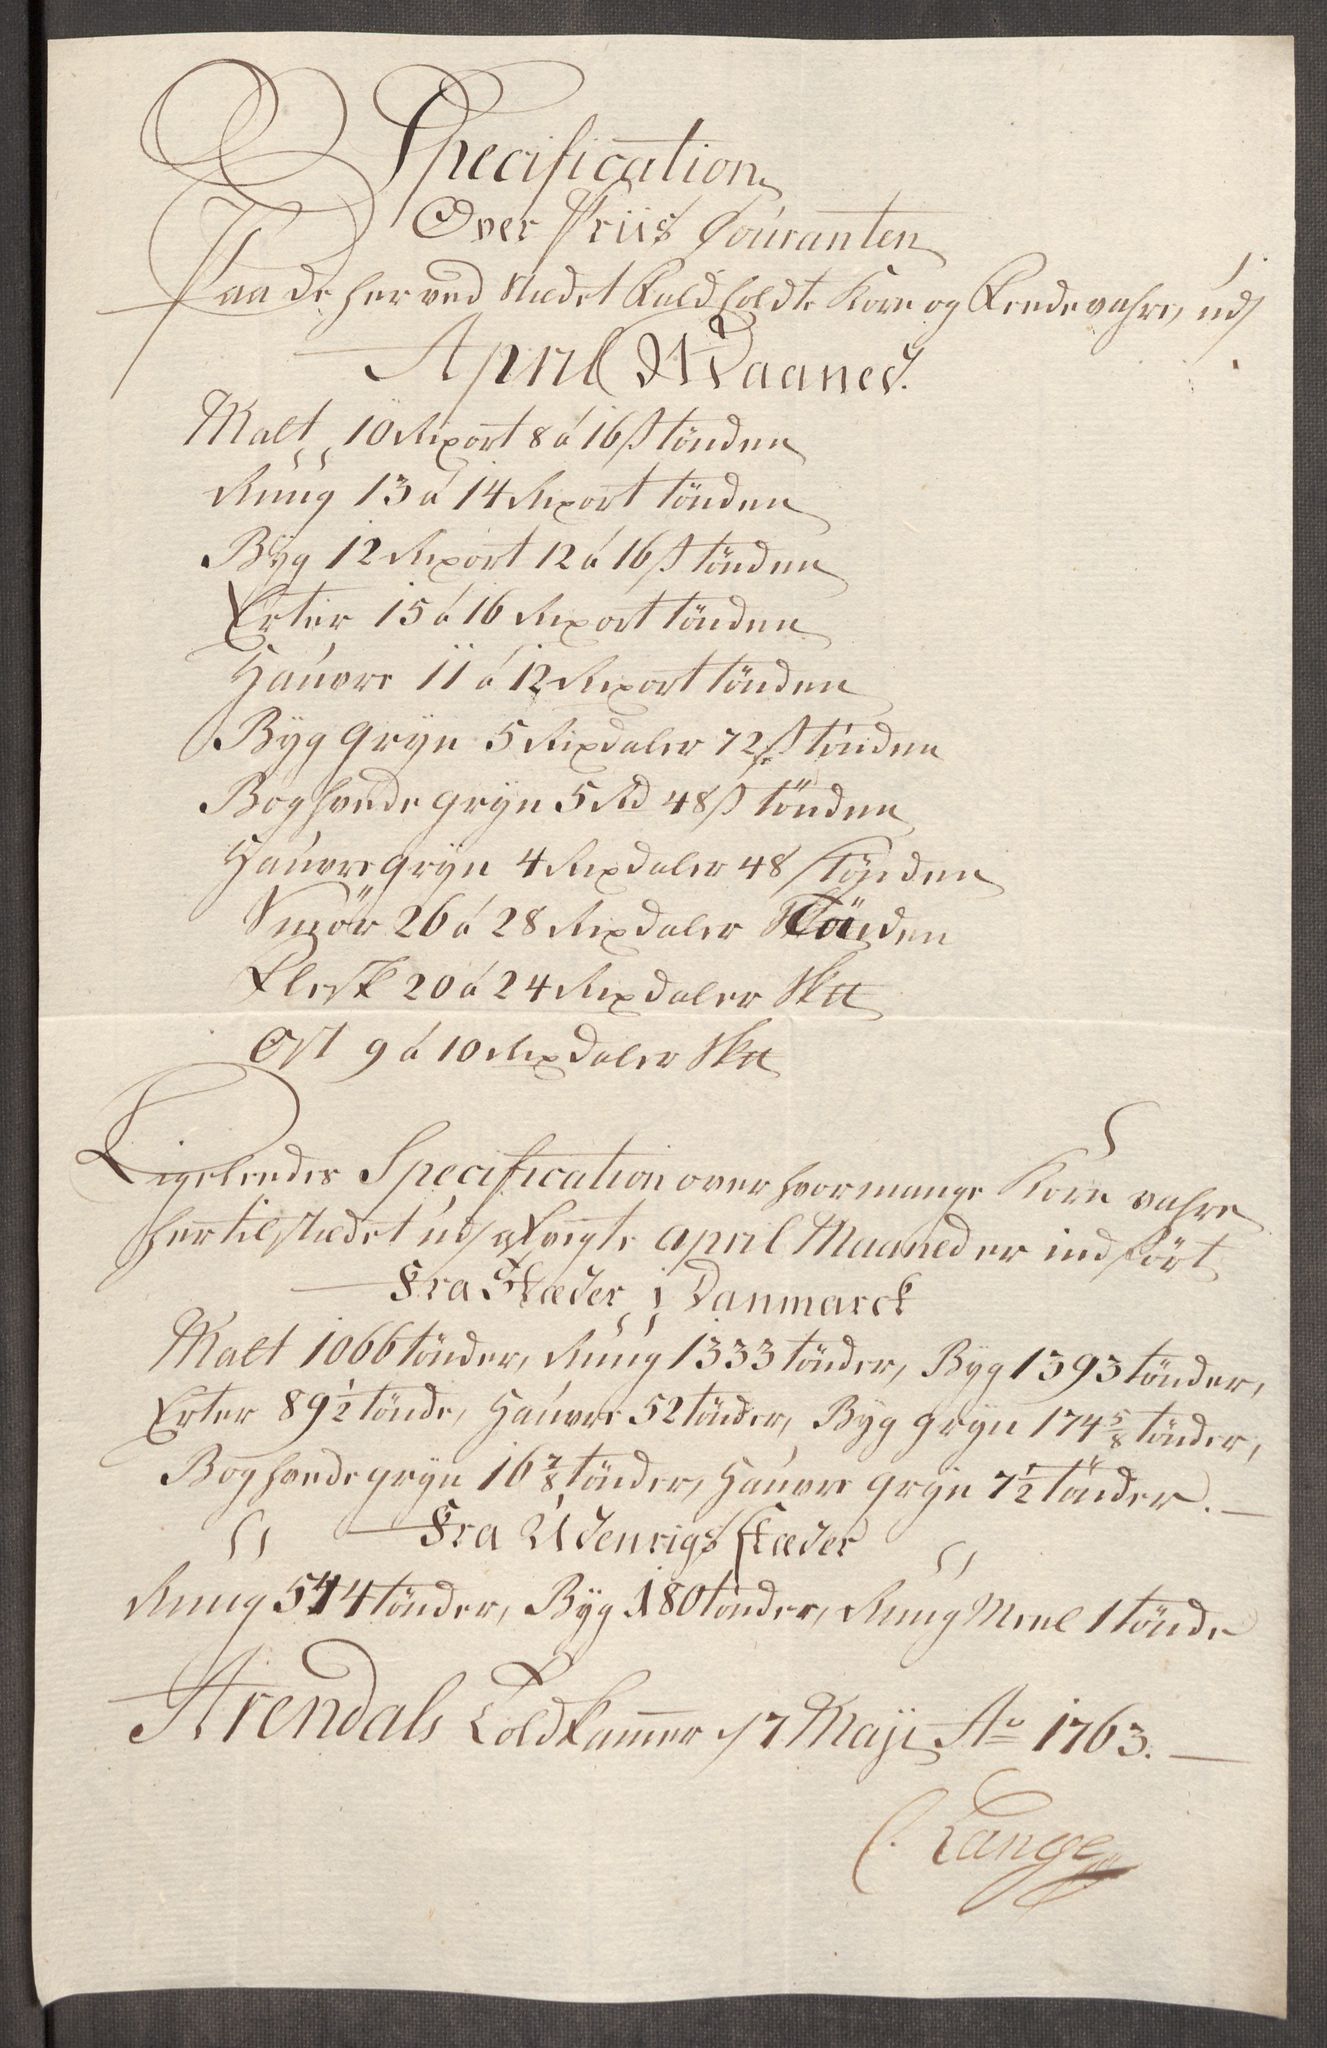 Specification
Over Priis Couranten
Paa de her ved Stædet Fald holdte Korn og Feedevahre, udj
April Maaned.
Malt 10 Rixort 8 á 16 ß tönden
Rúúg 13 á 14 Rixort tönden
Byg 12 Rixort 12 á 16 ß tönden
Erter 15 á 16 Rixort tönden
Haúvre 11 á 12 Rixort tönden
Byg Gryn 5 Rixdaler 72 ß tönden
Boghvede gryn 5 Rd 48 ß tönden
Haúvre gryn 4 Rixdaler 48 ß tönden
Smör 26 á 28 Rixdaler tönden
Flesk 20 á 24 Rixdaler Sk℔
Ost 9 á 10 Rixdaler Sk℔
Ligeleedes Specification over hvor mange Korn vahre
her til Stædet udj april Maaned er indfört
Fra Stæder i Danmarck
Malt 1066 tönder, Rúúg 1333 tönder, Byg 1393 tönder,
Erter 89 1/2 tönde, Haúvre 52 tönder, Byg gryn 174 5/8 tönder,
Boghvede gryn 16 7/8 tönder, Haúvre gryn 7 1/2 tönder. —
Fra Udenrigs stæder
Rúúg 544 tönder, Byg 180 tönder, Rúúg Meel 1 tönde
Arendals Toldkammer d 7 Maji Ao 1763. —
C. Lange